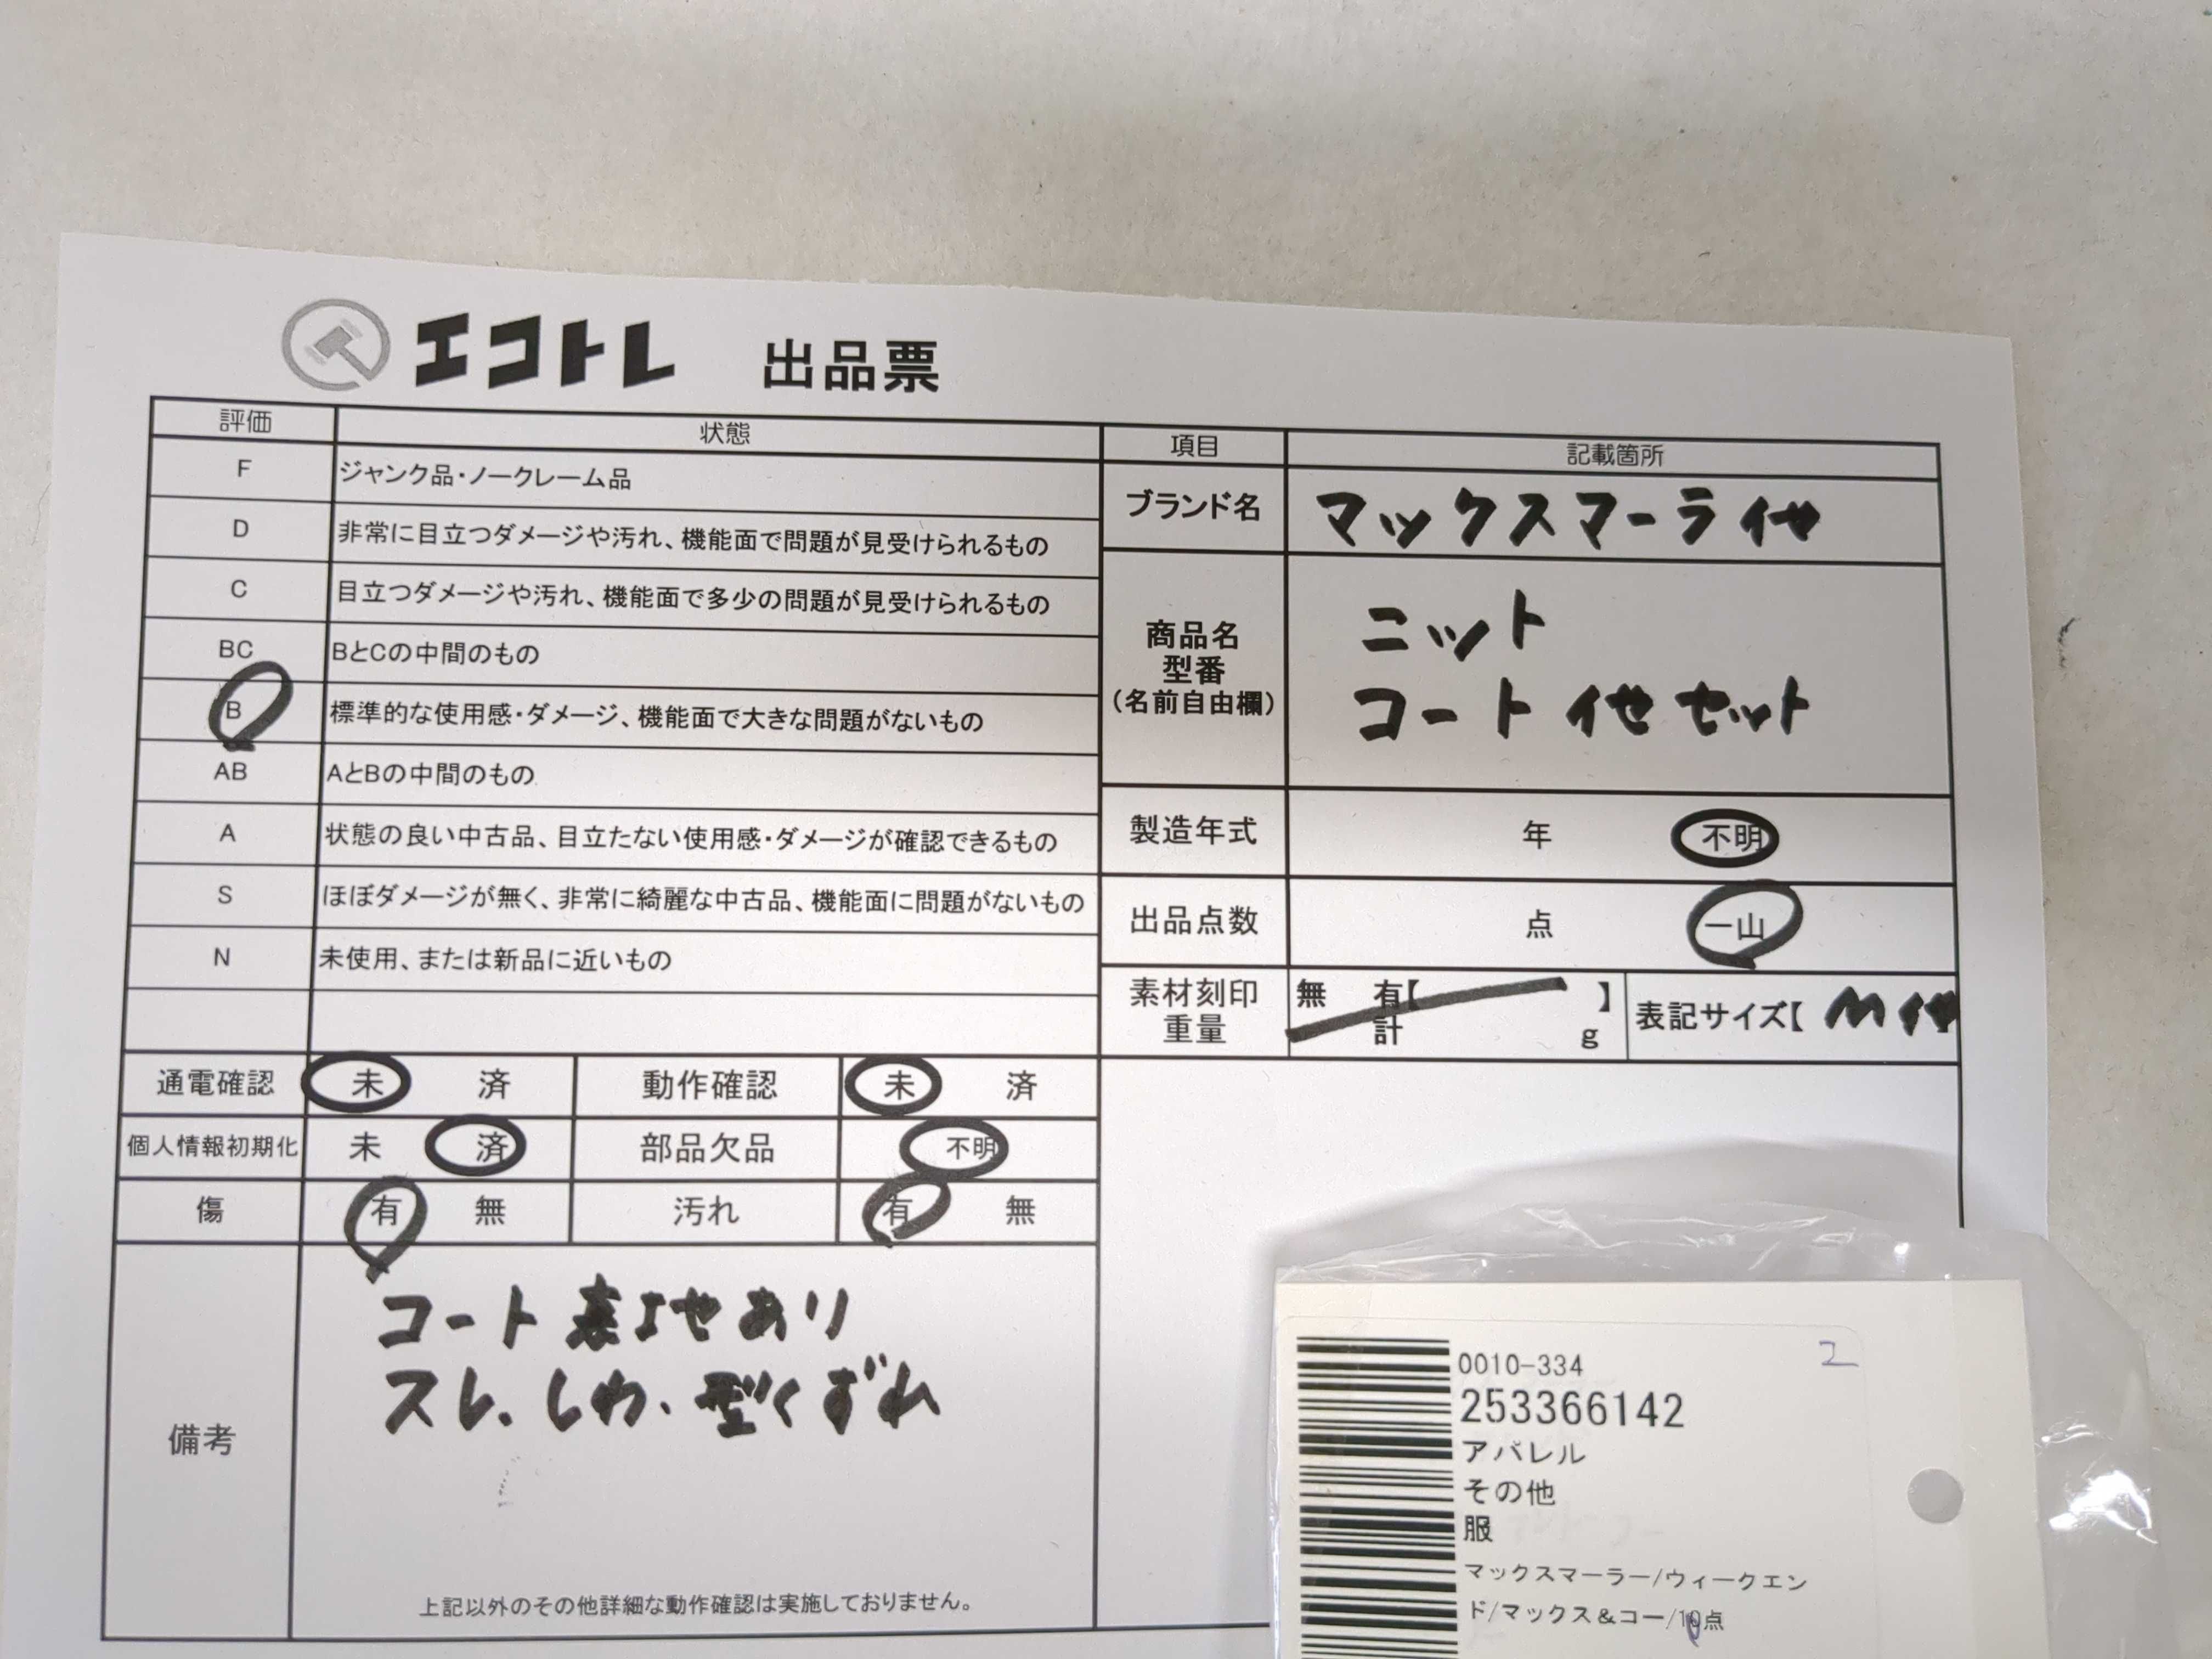 エコトレ 出品票
評価 状態
F ジャンク品・ノークレーム品
D 非常に目立つダメージや汚れ、機能面で問題が見受けられるもの
C 目立つダメージや汚れ、機能面で多少の問題が見受けられるもの
BC BとCの中間のもの
B 標準的な使用感・ダメージ、機能面で大きな問題がないもの
AB AとBの中間のもの
A 状態の良い中古品、目立たない使用感・ダメージが確認できるもの
S ほぼダメージが無く、非常に綺麗な中古品、機能面に問題がないもの
N 未使用、または新品に近いもの
項目 記載箇所
ブランド名 マックスマーラ 他
商品名
型番
(名前自由欄)
ニット
コート 他 セット
製造年式 年 不明
出品点数 点 一山
素材刻印 無 有【 】
重量 計 g
表記サイズ【 M 他
通電確認 未 済 動作確認 未 済
個人情報初期化 未 済 部品欠品 不明
傷 有 無 汚れ 有 無
備考
コート 表 あり
スレ、しわ、型くずれ
上記以外のその他詳細な動作確認は実施しておりません。
2
0010-334
253366142
アパレル
その他
服
マックスマーラー/ウィークエン
ド/マックス&コー/点